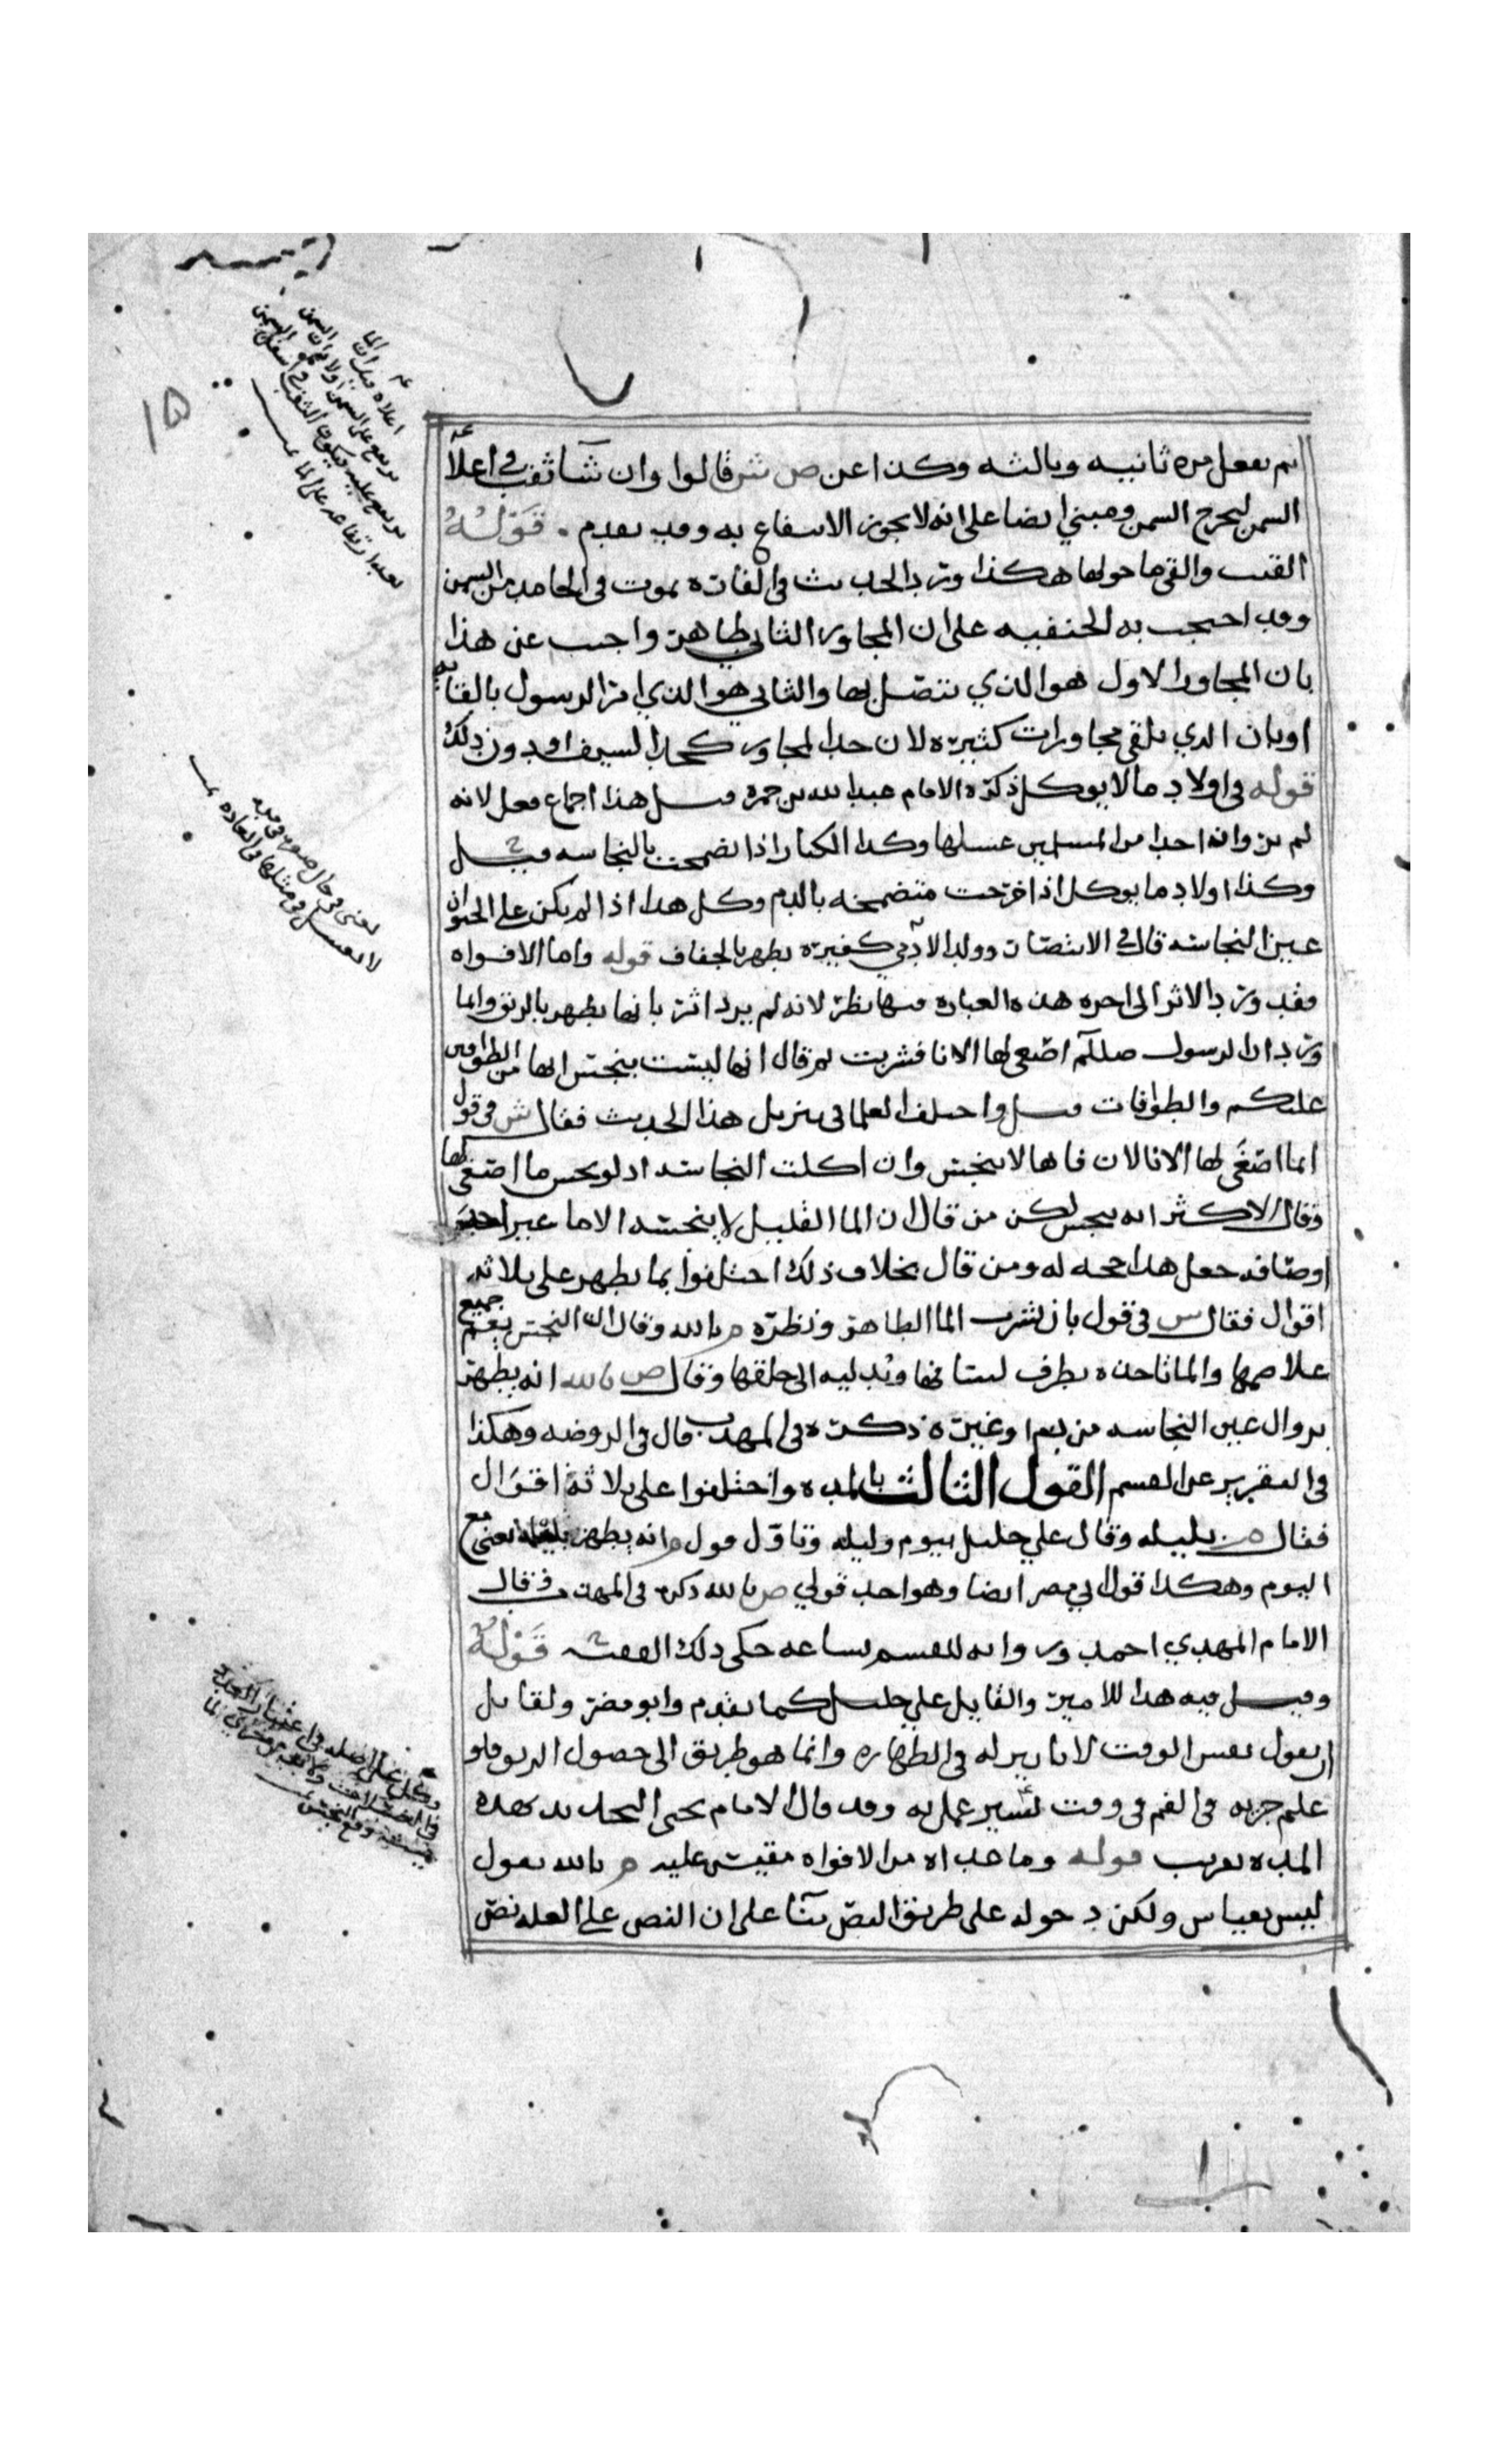 ثم يفعل مره ثانيه وثالثه وكذا عن ص ش قالوا وان شا ثقب في اعلا
السمن ليخرج السمن ومبني ايضا على انه لا يجوز الانتفاع به وقد تقدم . قوله
القيت والقي ما حولها هكذا ورد الحديث في الفاره تموت في الجامد من السمن
وقد احتجت به الحنفيه على ان المجاور الثاني طاهر واجيب عن هذا
بان المجاور الاول هو الذي يتصل بها والثاني هو الذي امر الرسول بالقائه
او بان الذي يلقى مجاورات كثيره لان حد المجاور كحد السيف او دون ذلك
قوله في اولاد ما لا يوكل ذكره الامام عبد الله بن حمزه قيل هذا اجماع فعل لانه
لم يروا ان احدا من المسلمين غسلها وكذا الكبار اذا تضمخت بالنجاسه قيل
وكذا اولاد ما يوكل اذا خرجت متضمخه بالدم وكل هذا اذا لم يكن على الحيوان
عين النجاسه قال في الانتصار وولد الادمي كغيره يطهر بالجفاف قوله واما الافواه
فقد ورد الاثر الى اخره هذه العباره فيها نظر لانه لم يرد اثر بانها تطهر بالريق وانما
ورد ان الرسول صللم اصغى لها الانا فشربت ثم قال انها ليست بنجس انها من الطوافين
عليكم والطوافات قيل واختلف العلما في تنزيل هذا الحديث فقال ش في قول
انما اصغى لها الانا لان فاها لا ينجس وان اكلت النجاسه اذ لو نجس ما اصغى لها
وقال الاكثر انه ينجس لكن من قال ان الما القليل لا ينجسه الا ما غير احد
اوصافه جعل هذا حجه له ومن قال بخلاف ذلك اختلفوا بما يطهر على ثلاثه
اقوال فقال س في قول بان تشرب الما الطاهر ونظره م بالله وقال ان النجس يعم جميع
والما تاخذه بطرف لسانها وتدليه الى حلقها وقال ص بالله انه يطهر
بزوال عين النجاسه من دم او غيره ذكره في المهذب قال في الروضه وهكذا
في التقرير عن القسم القول الثالث بالمده واختلفوا على ثلاثة اقوال
فقال بليله وقال علي خليل بيوم وليله وتاول قول م انه يطهر بليله يعني مع
اليوم وهكذا قول ابي مضر ايضا وهو احد قولي ص بالله ذكره في المهذب وقال
الامام المهدي احمد وروايه للقسم بساعه حكى ذلك الفقيه قوله
وقيل فيه هذا للامير والقايل علي خليل كما تقدم وابو مضر ولقايل
ان يقول نفس الوقت لا تاثير له في الطهاره وانما هو طريق الى حصول الريق فلو
علم جريه في الفم في وقت يسير عمل به وقد قال الامام يحيى التحديد بهذه
المده تقريب قوله وما عداه من الافواه مقيس عليه م بالله يقول
ليس بقياس ولكن دخوله على طريق النص بنآ على ان النص على العله نص
يعني في حال صغره
لا يغسل في مثلها في العاده